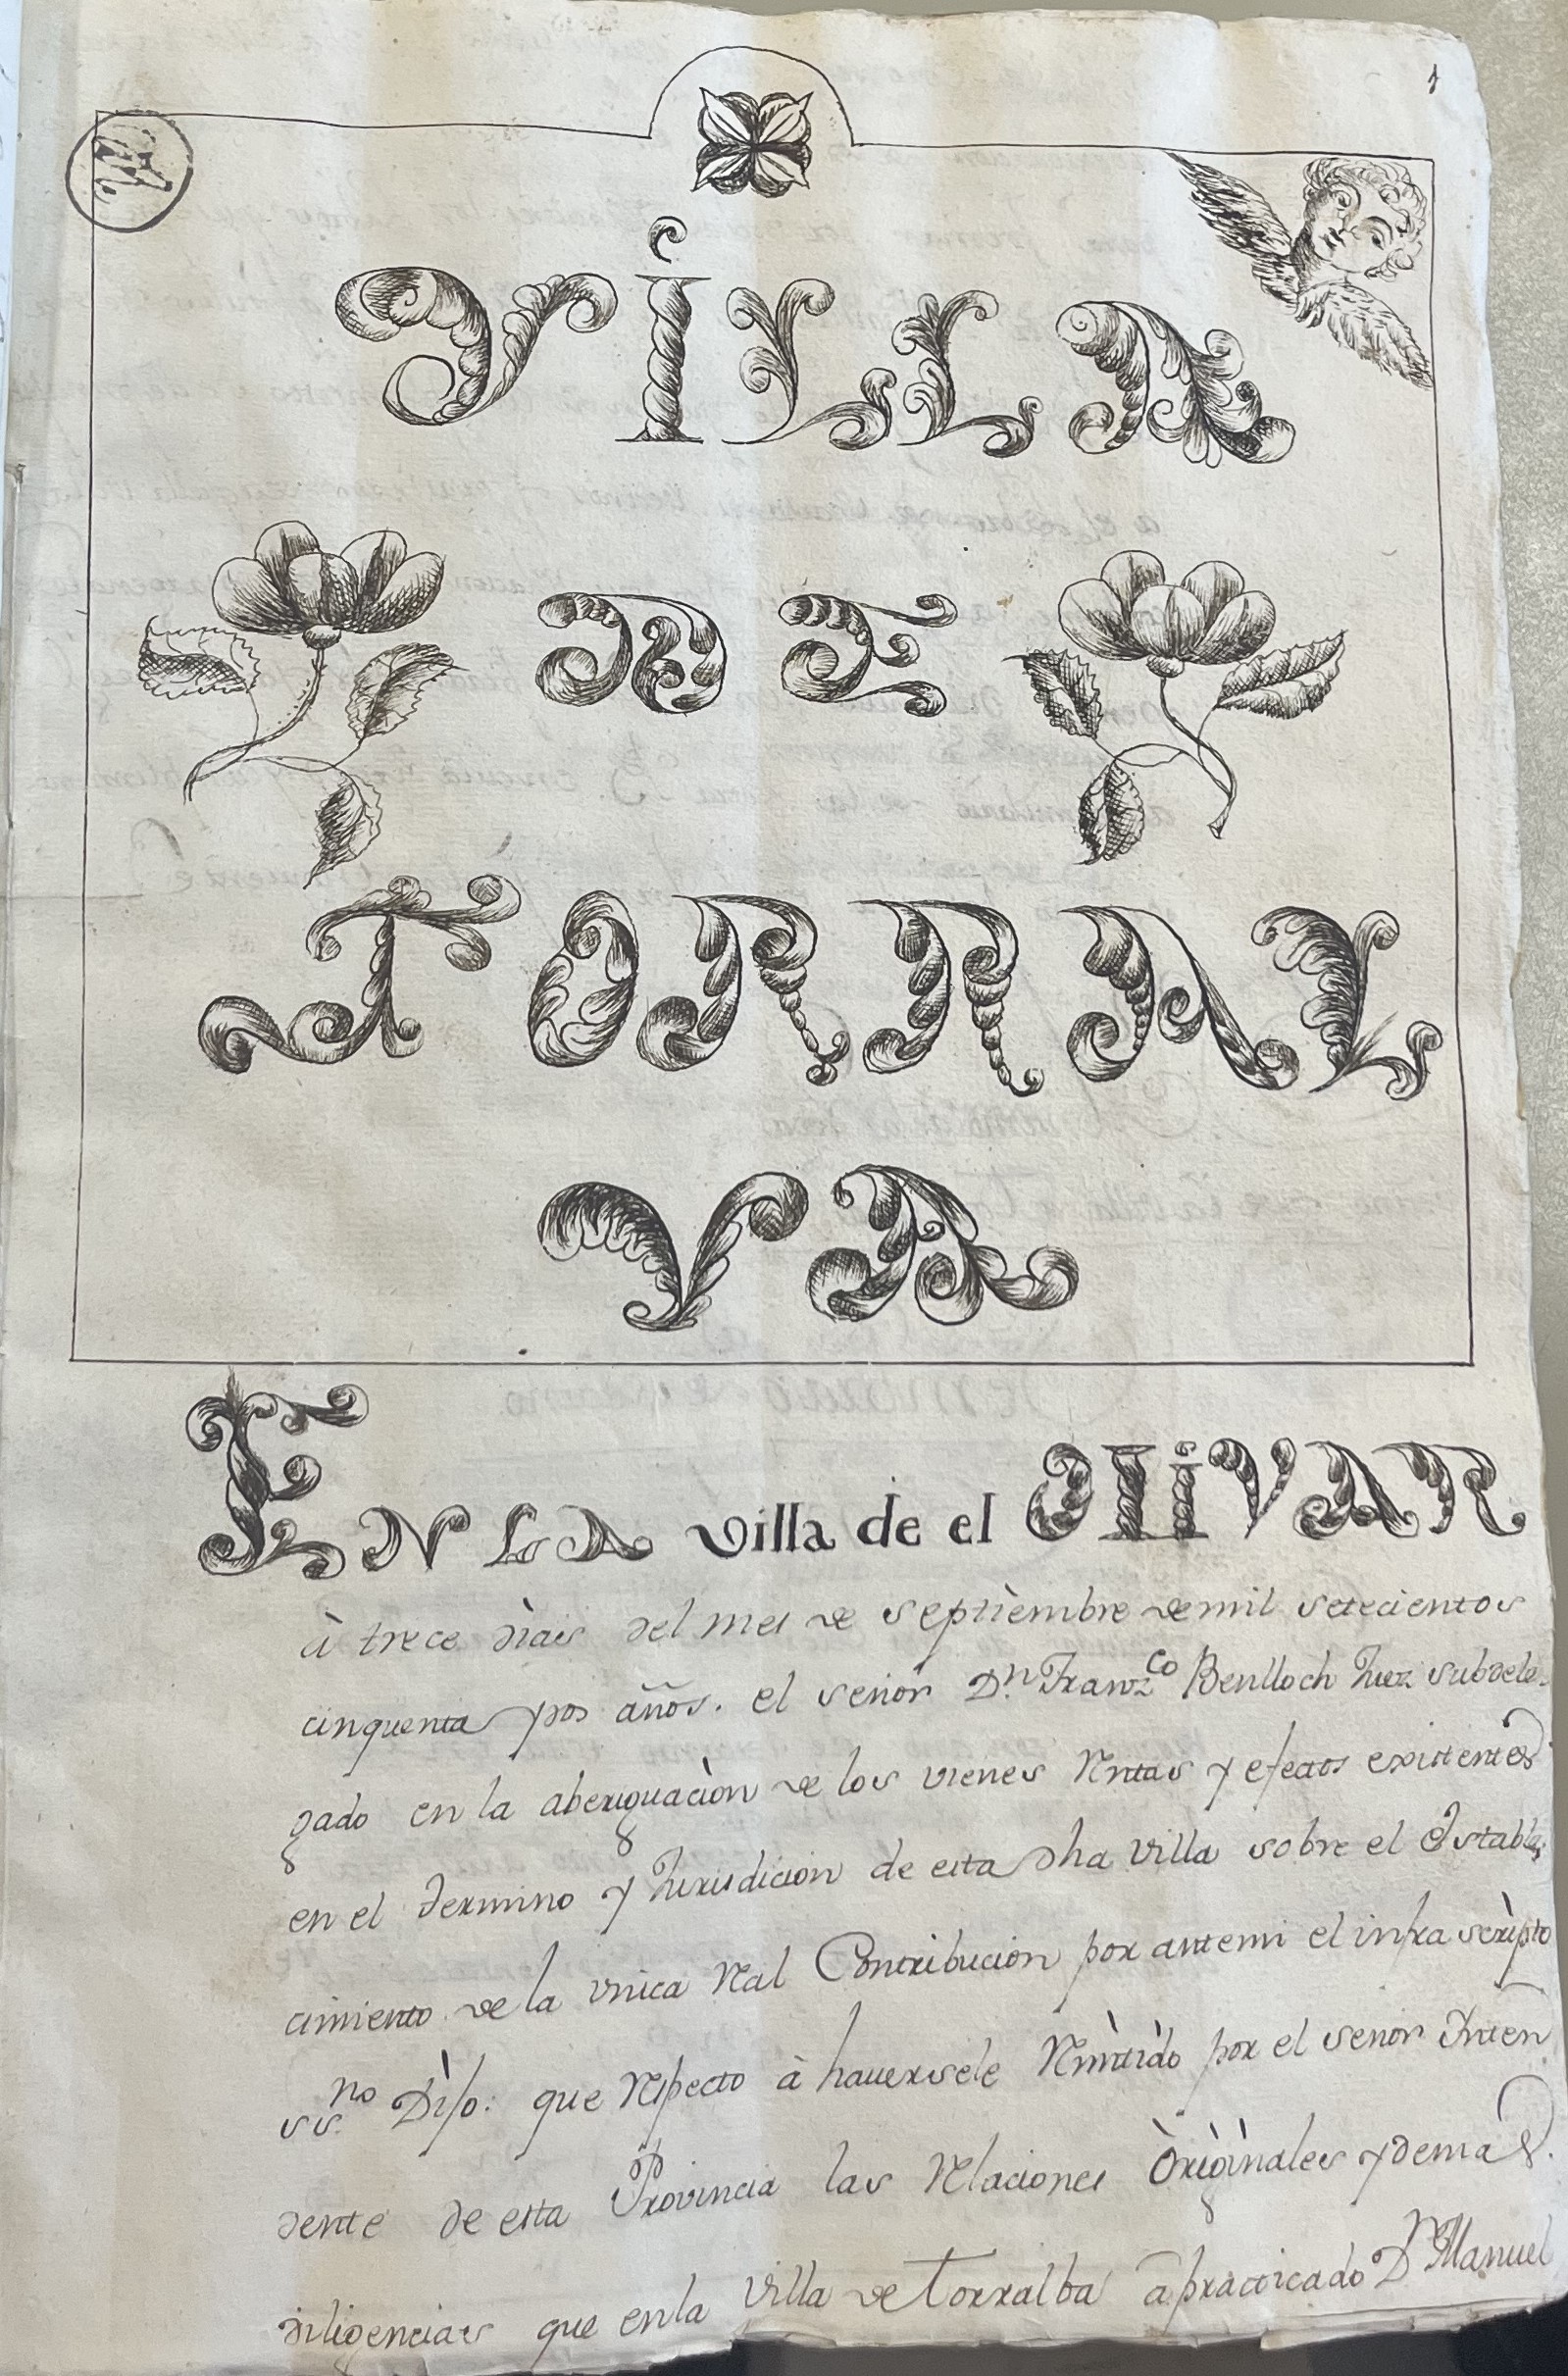 1
VILLA
DE
TORRAL
VA
EN LA villa de el OlIVAR
à trece dias del mes de septiembre de mil setecientos
cinquenta y dos años. el señor Dn. Franzco Benlloch Juez subdele-
gado en la aberiguaciòn de los vienes Rentas y efectos existentes
en el termino y Jurisdicion de esta dha villa sobre el Estable
cimiento de la vnica Real Contribucion por antemi el infra scripto
ssno. Dijo: que Respecto à hauersele Remitido por el señor Inten
dente de esta Provincia las Relaciones Originales y demas
diligencias que en la villa de Torralba à practicado Dn Manuel